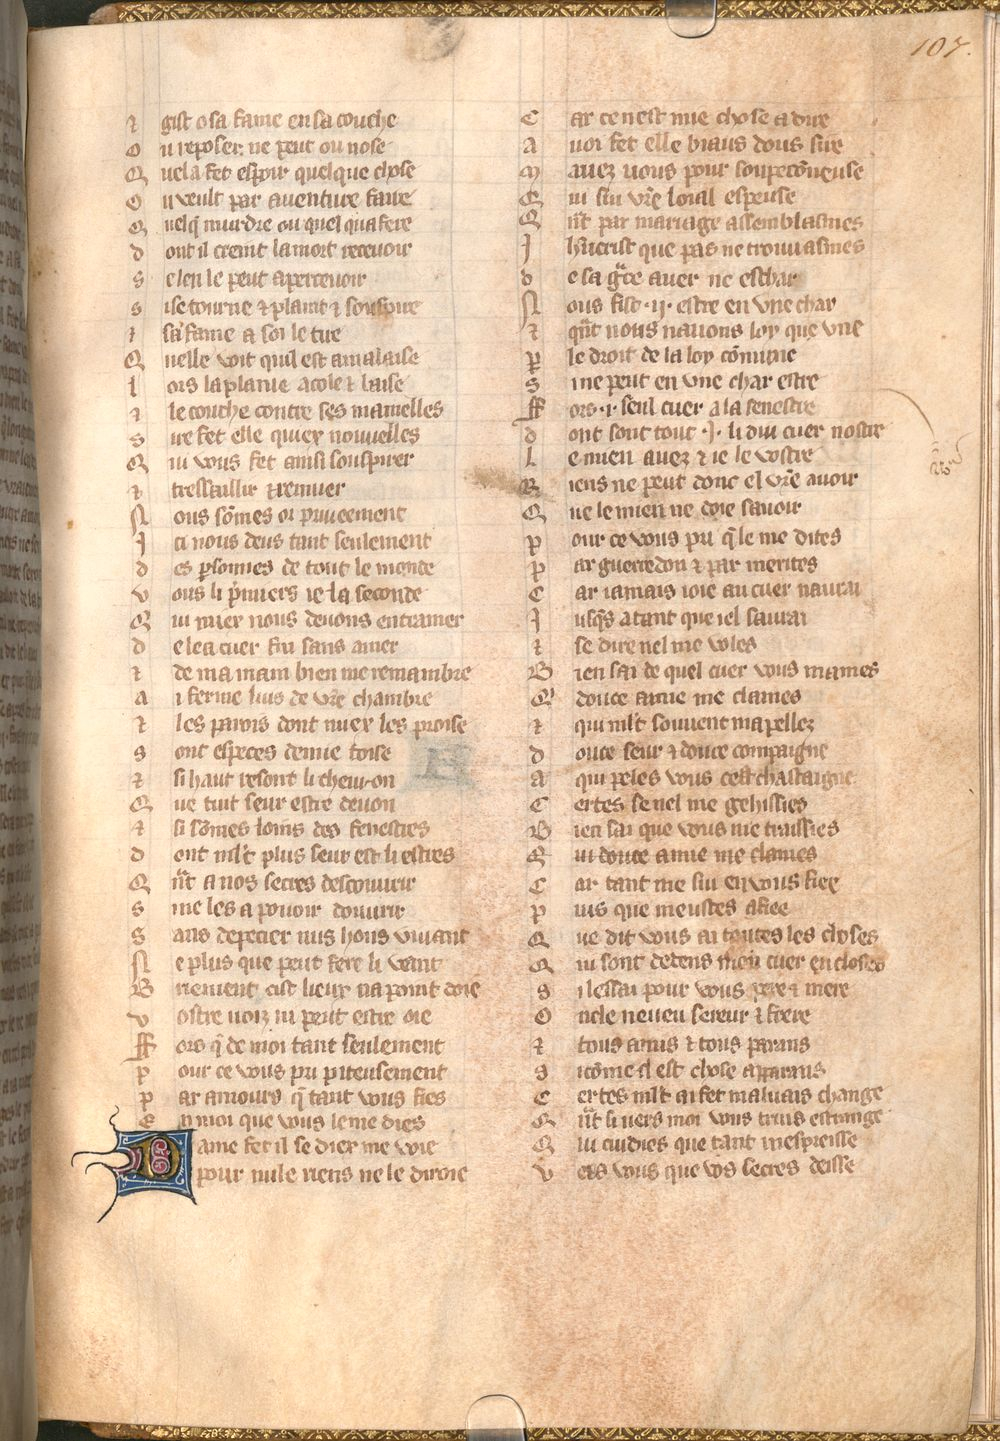 107.
⁊ gist o sa fame en sa couche
O u reposer ne peut ou nose
Q uela fet espoir quelque chose
O u veult par aventure faire
Q uelq̄ murdre ou quel quafere
d ont il creint la mort recevoir
s e len le peut apercevoir
s i se tourne ⁊ plaint ⁊ souspire
⁊ sa fame a soi le tire
Q uelle voit quil est a malaise
l ors la planie acole ⁊ baise
⁊ le couche contre ses mamelles
s ire fet elle quiex nouuelles
Q ui vous fet ainsi souspirer
⁊ tressaillir ⁊ remuer
N ous sōmes or priueement
J ci nous deus tant seulement
d es ꝑsonnes de tout le monde
v ous li p̄miers ie la seconde
Q ui miex nous deuons entramer
d e leal cuer fin sans amer
⁊ de ma main bien me remambre
a i ferme luis de vr̄e chambre
⁊ les parois dont miex les proise
s ont especes demie toise
⁊ si haut resont li cheuron
Q ue tuit seur estre deuon
⁊ si sōmes loing des fenestres
d ont ml't plus seur est li estres
Q n̄t a nos secres descouurir
s i ne les a pouoir douurir
S ans depecier nus hons viuant
N e plus que peut fere li vent
B riement cist lieux na point doie
v ostre uoiz ni peut estre oie
ff ors q̄ de moi tant seulement
p our ce vous pri piteusement
p ar amours q̄ tant vous fies
E n moi que vous le me dies
D ame fet il se diex me voie
pour nule riens ne le diroie
C ar ce nest mie chose a dire
A uoi fet elle biaus dous sire
M auez uous pour soupecōneuse
Q ui sui vr̄e loial espeuse
Q n̄t par mariage assemblasmes
J h'ucrist que pas ne trouuasmes
d e sa gr̄ce auer ne eschar
N ous fist ·ij· estre en vne char
⁊ qn̄t nous nauons loy que vne
p le droit de la loy cōmune
s i ne peut en vne char estre
ff ors ·j· seul cuer a la senestre
d ont sont tout ·j· li dui cuer nostre
L e mien auez ⁊ ie le vostre
R iens ne peut donc el vr̄e auoir
Q ue le mien ne doie sauoir
p our ce vous pri q̄ le me dites
p ar guerredon ⁊ par merites
C ar iamais ioie au cuer naurai
J usqs̄ a tant que iel saurai
⁊ se dire nel me voles
B ien sai de quel cuer vous mames
Q douce amie me clames
⁊ qui ml't souuent mapellez
d ouce seur ⁊ douce compaigne
A qui peles vous ceste chastaigne
C ertes se nel me gehissies
B ien sai que vous me traissies
Q ui douce amie me clames
C ar tant me sui en vous fiee
p uis que meustes afiee
Q ue dit vous ai toutes les choses
Q ui sont dedens mon cuer encloses
S i lessai pour vous pere ⁊ mere
O ncle neueu sereur ⁊ frere
⁊ tous amis ⁊ tous parans
S icōme il est chose apparans
C ertes ml't ai fet mauuais change
Q n̄t si uers moi vous truis estrange
Q ui cuidies que tant mespreisse
V ers vous que vos secres deisse